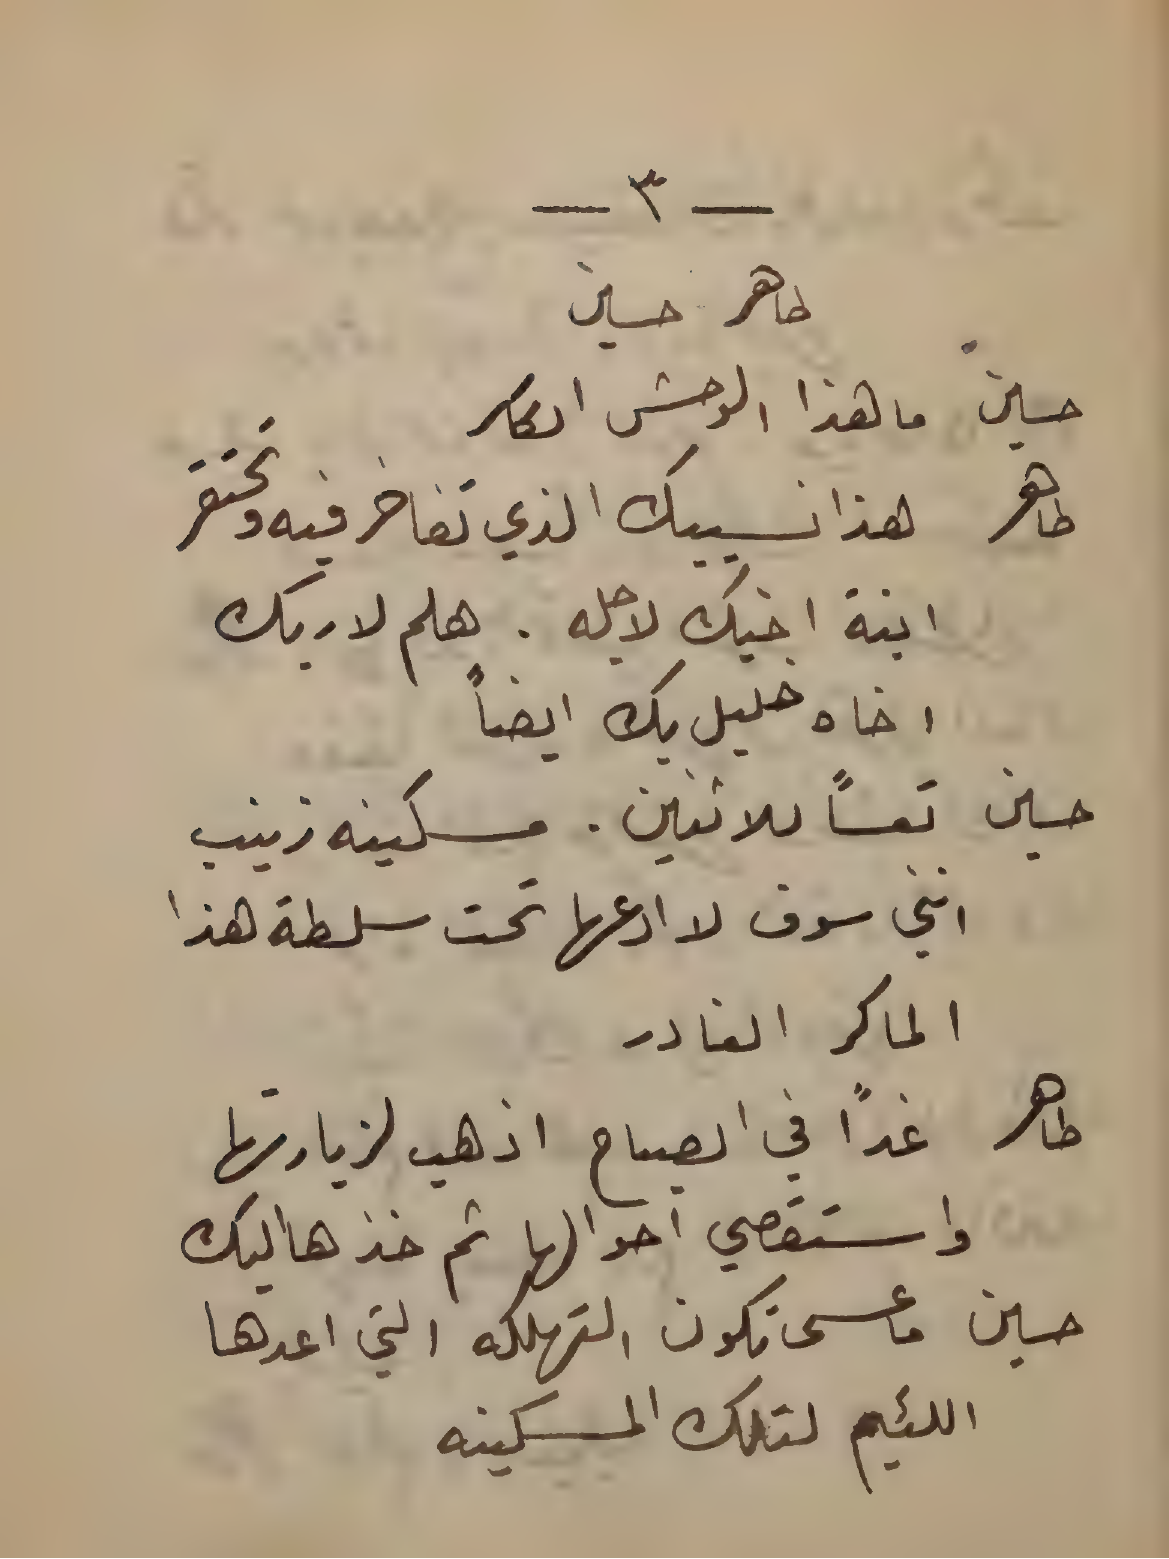 — ٣ —
طاهر حسين
حسين ما هذا الوحش الكاسر
طاهر هذا نسيبك الذي تفاخر فيه وتحتقر
ابنة اخيك لاجله . هلم لاريك
اخاه خليل بك ايضاً
حسين تعساً للاثنين . مسكينه زينب
انني سوف لا ادعها تحت سلطة هذا
الماكر الغادر
طاهر غداً في الصباح اذهب لزيارتها
واستقصي احوالها ثم خذها اليك
حسين ما عسى تكون التهلكه التي اعدها
اللئيم لتلك المسكينه